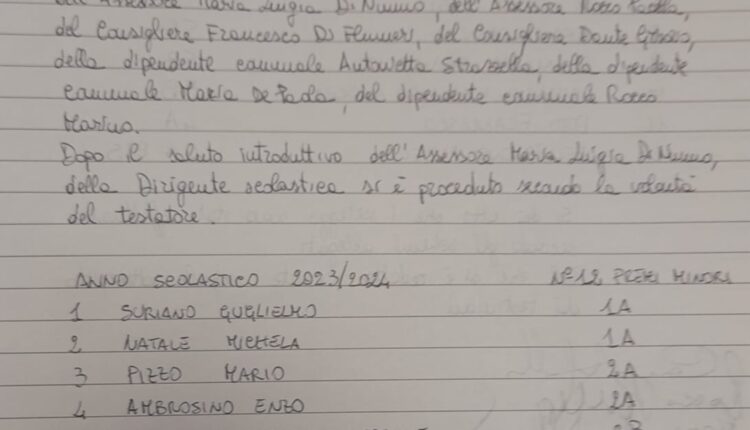 dell'Assessore Maria Luigia Di Nunno, dell'Assessore Rosso Paolo,
del Consigliere Francesco Di , del Consigliere Dante ,
della dipendente comunale Antonietta Strazzella, della dipendente
comunale Maria De Paola, del dipendente comunale Rocco
Marino.
Dopo il saluto introduttivo dell'Assessore Maria Luigia Di Nunno,
della Dirigente scolastica si è proceduto secondo la volontà
del testatore.
ANNO SCOLASTICO 2023/2024 N°12 PREMI MINORI
1 SURIANO GUGLIELMO 1A
2 NATALE MICHELA 1A
3 PIZZO MARIO 2A
4 AMBROSINO ENZO 2A